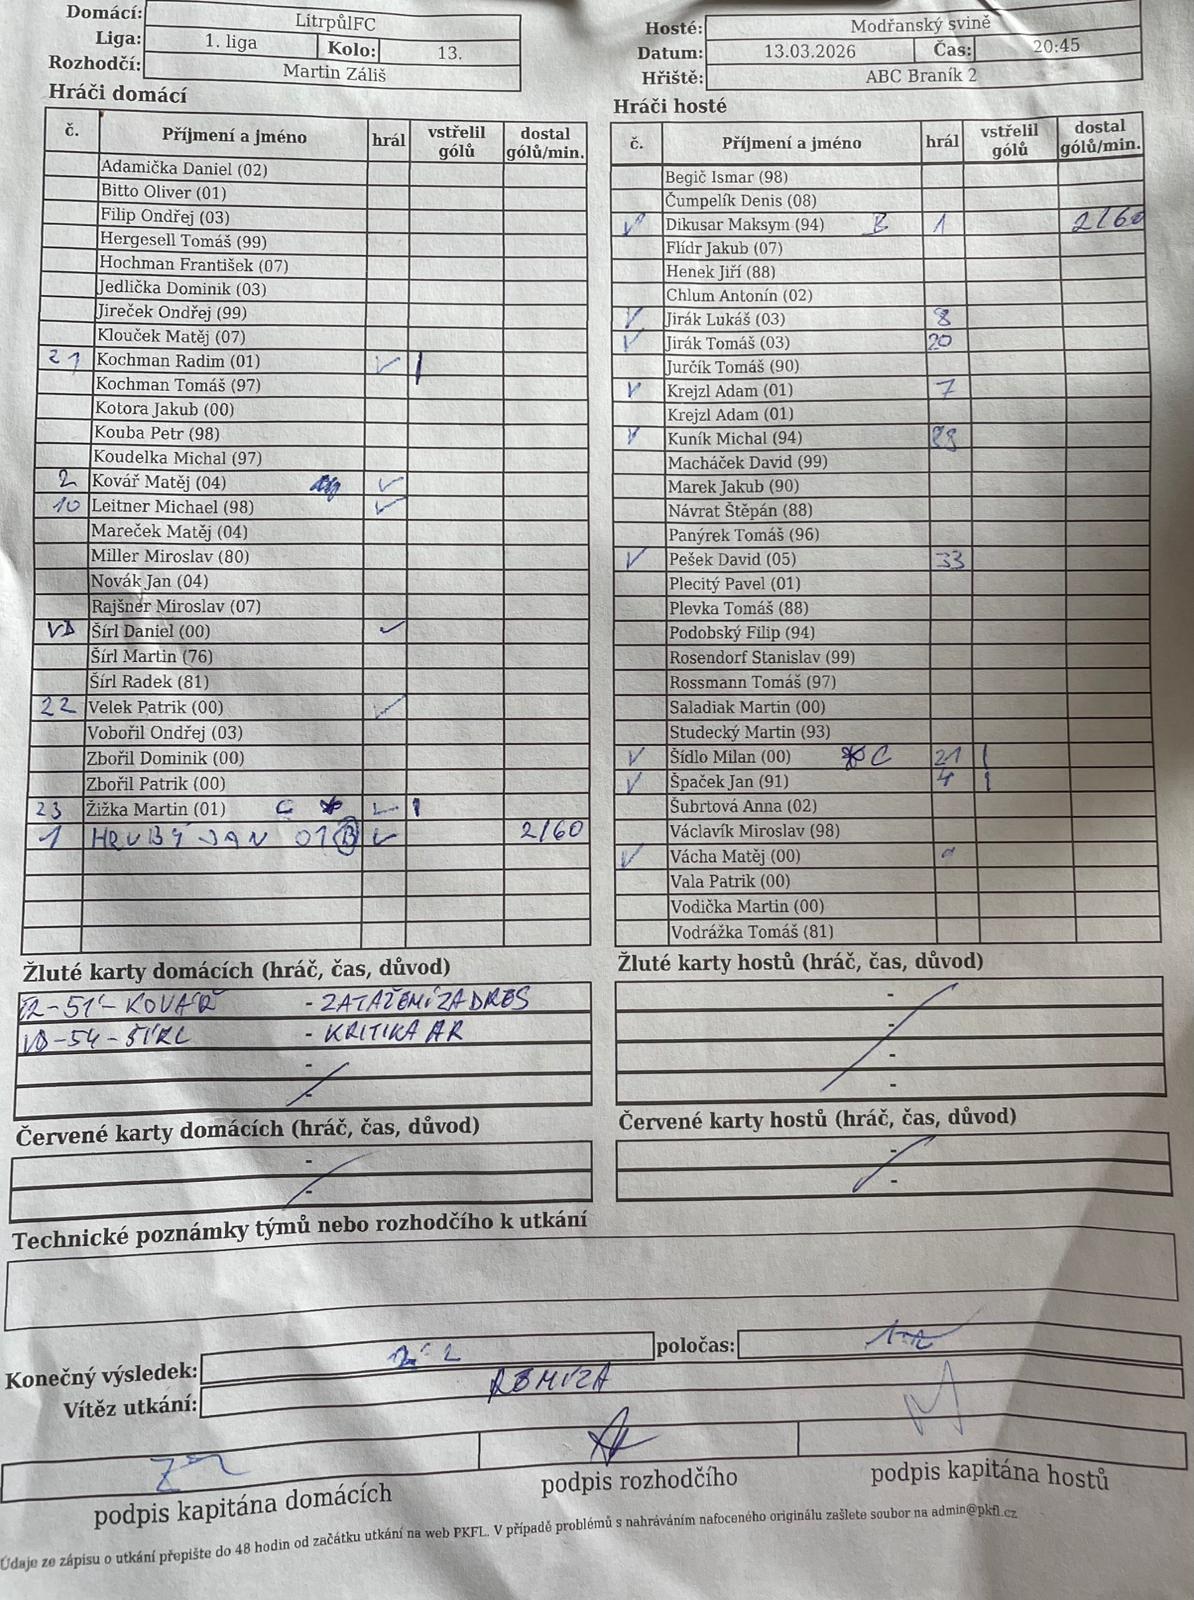 Domácí: LitrpůlFC
Liga: 1. liga Kolo: 13.
Rozhodčí: Martin Záliš
Hosté: Modřanský svině
Datum: 13.03.2026 Čas: 20:45
Hřiště: ABC Braník 2
Hráči domácí
č. Příjmení a jméno hrál vstřelil gólů dostal gólů/min.
Adamička Daniel (02)
Bitto Oliver (01)
Filip Ondřej (03)
Hergesell Tomáš (99)
Hochman František (07)
Jedlička Dominik (03)
Jireček Ondřej (99)
Klouček Matěj (07)
21 Kochman Radim (01) ✓ |
Kochman Tomáš (97)
Kotora Jakub (00)
Kouba Petr (98)
Koudelka Michal (97)
2 Kovář Matěj (04) ✓
10 Leitner Michael (98) ✓
Mareček Matěj (04)
Miller Miroslav (80)
Novák Jan (04)
Rajšner Miroslav (07)
VD Šírl Daniel (00) ✓
Šírl Martin (76)
Šírl Radek (81)
22 Velek Patrik (00) ✓
Vobořil Ondřej (03)
Zbořil Dominik (00)
Zbořil Patrik (00)
23 Žižka Martin (01) C ✓ |
1 HRUBÝ JAN 01 B ✓ 2/60
Hráči hosté
č. Příjmení a jméno hrál vstřelil gólů dostal gólů/min.
Begič Ismar (98)
Čumpelík Denis (08)
✓ Dikusar Maksym (94) B 1 2/60
Flídr Jakub (07)
Henek Jiří (88)
Chlum Antonín (02)
✓ Jirák Lukáš (03) 8
✓ Jirák Tomáš (03) 20
Jurčík Tomáš (90)
✓ Krejzl Adam (01) 7
Krejzl Adam (01)
✓ Kuník Michal (94)
Macháček David (99)
Marek Jakub (90)
Návrat Štěpán (88)
Panýrek Tomáš (96)
✓ Pešek David (05) 33
Plecitý Pavel (01)
Plevka Tomáš (88)
Podobský Filip (94)
Rosendorf Stanislav (99)
Rossmann Tomáš (97)
Saladiak Martin (00)
Studecký Martin (93)
✓ Šídlo Milan (00) C 21 |
✓ Špaček Jan (91) 4 |
Šubrtová Anna (02)
Václavík Miroslav (98)
✓ Vácha Matěj (00)
Vala Patrik (00)
Vodička Martin (00)
Vodrážka Tomáš (81)
Žluté karty domácích (hráč, čas, důvod)
- 51' - KOVÁŘ - ZATAŽENÍ ZA DRES
VD - 54 - ŠÍRL - KRITIKA AR
-
-
Žluté karty hostů (hráč, čas, důvod)
-
-
-
-
Červené karty domácích (hráč, čas, důvod)
-
-
Červené karty hostů (hráč, čas, důvod)
-
-
Technické poznámky týmů nebo rozhodčího k utkání
Konečný výsledek: 2:2 poločas:
Vítěz utkání: REMÍZA
podpis kapitána domácích podpis rozhodčího podpis kapitána hostů
Údaje ze zápisu o utkání přepište do 48 hodin od začátku utkání na web PKFL. V případě problémů s nahráváním nafoceného originálu zašlete soubor na admin@pkfl.cz